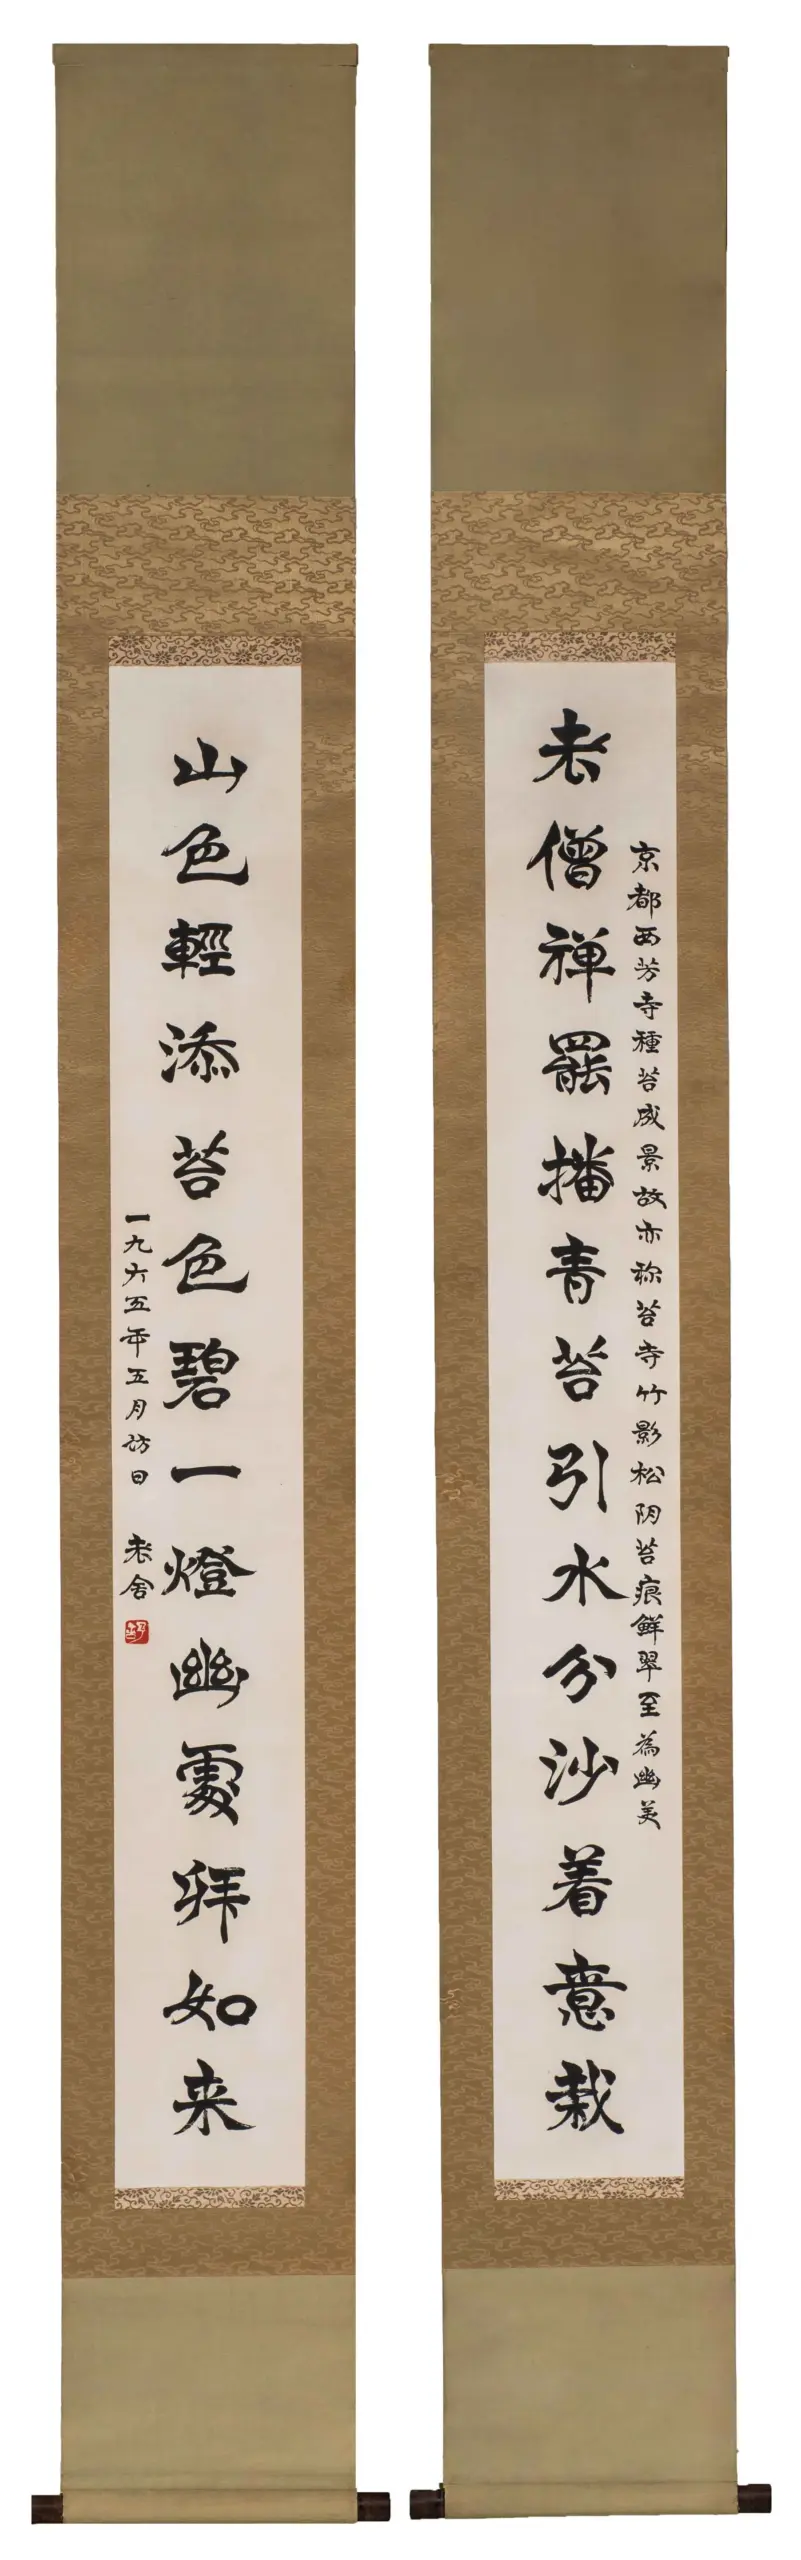 京都西芳寺種苔成景故亦称苔寺竹影松阴苔痕鮮翠至為幽美
老僧禅罷播青苔引水分沙着意栽
山色輕添苔色碧一燈幽處拜如来
一九六五年五月访日 老舍